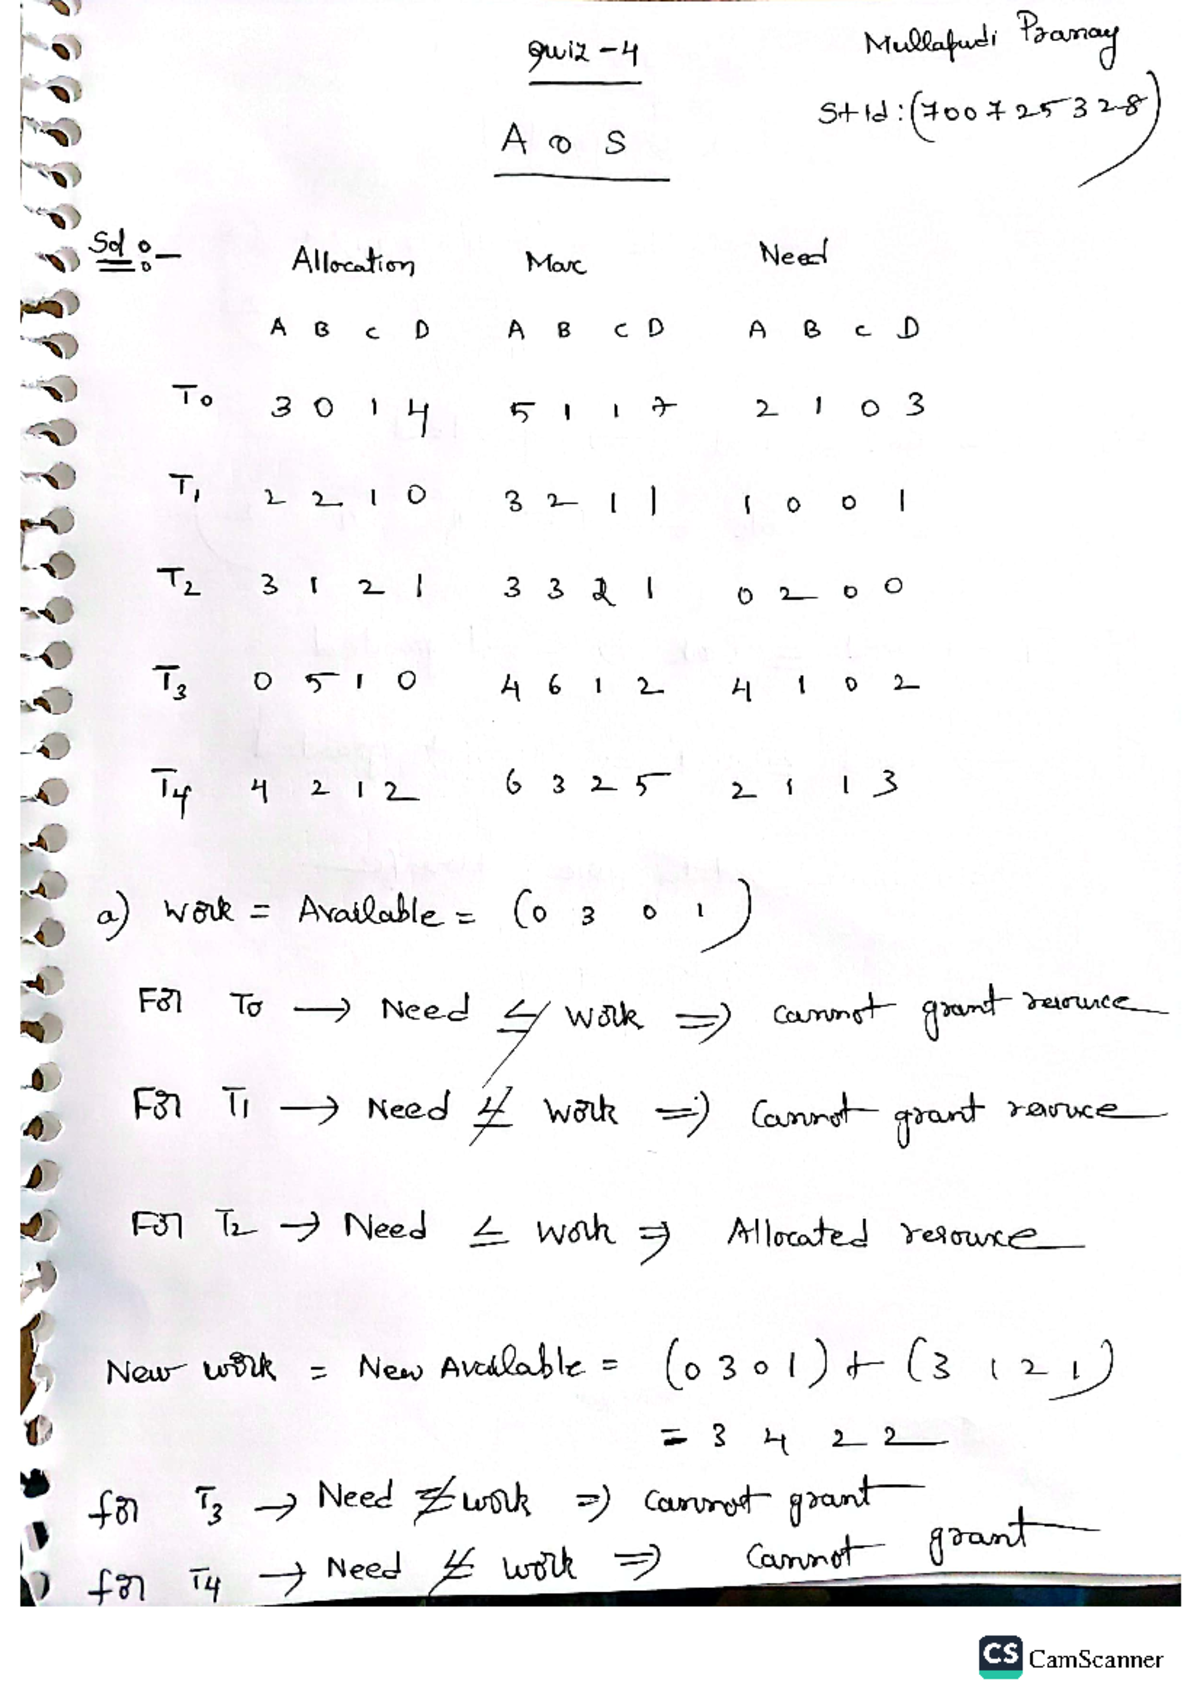 Quiz - 4
Mullapudi Pranay
St Id : (700725328)
A O S
Sol :-
Allocation Max Need
A B C D A B C D A B C D
T0 3 0 1 4 5 1 1 7 2 1 0 3
T1 2 2 1 0 3 2 1 1 1 0 0 1
T2 3 1 2 1 3 3 2 1 0 2 0 0
T3 0 5 1 0 4 6 1 2 4 1 0 2
T4 4 2 1 2 6 3 2 5 2 1 1 3
a) Work = Available = (0 3 0 1)
For T0 → Need ≰ Work ⇒ cannot grant resource
For T1 → Need ≰ Work ⇒ Cannot grant resource
For T2 → Need ≤ Work ⇒ Allocated resource
New work = New Available = (0 3 0 1) + (3 1 2 1)
= 3 4 2 2
for T3 → Need ≰ work ⇒ cannot grant
for T4 → Need ≰ work ⇒ Cannot grant
CS CamScanner